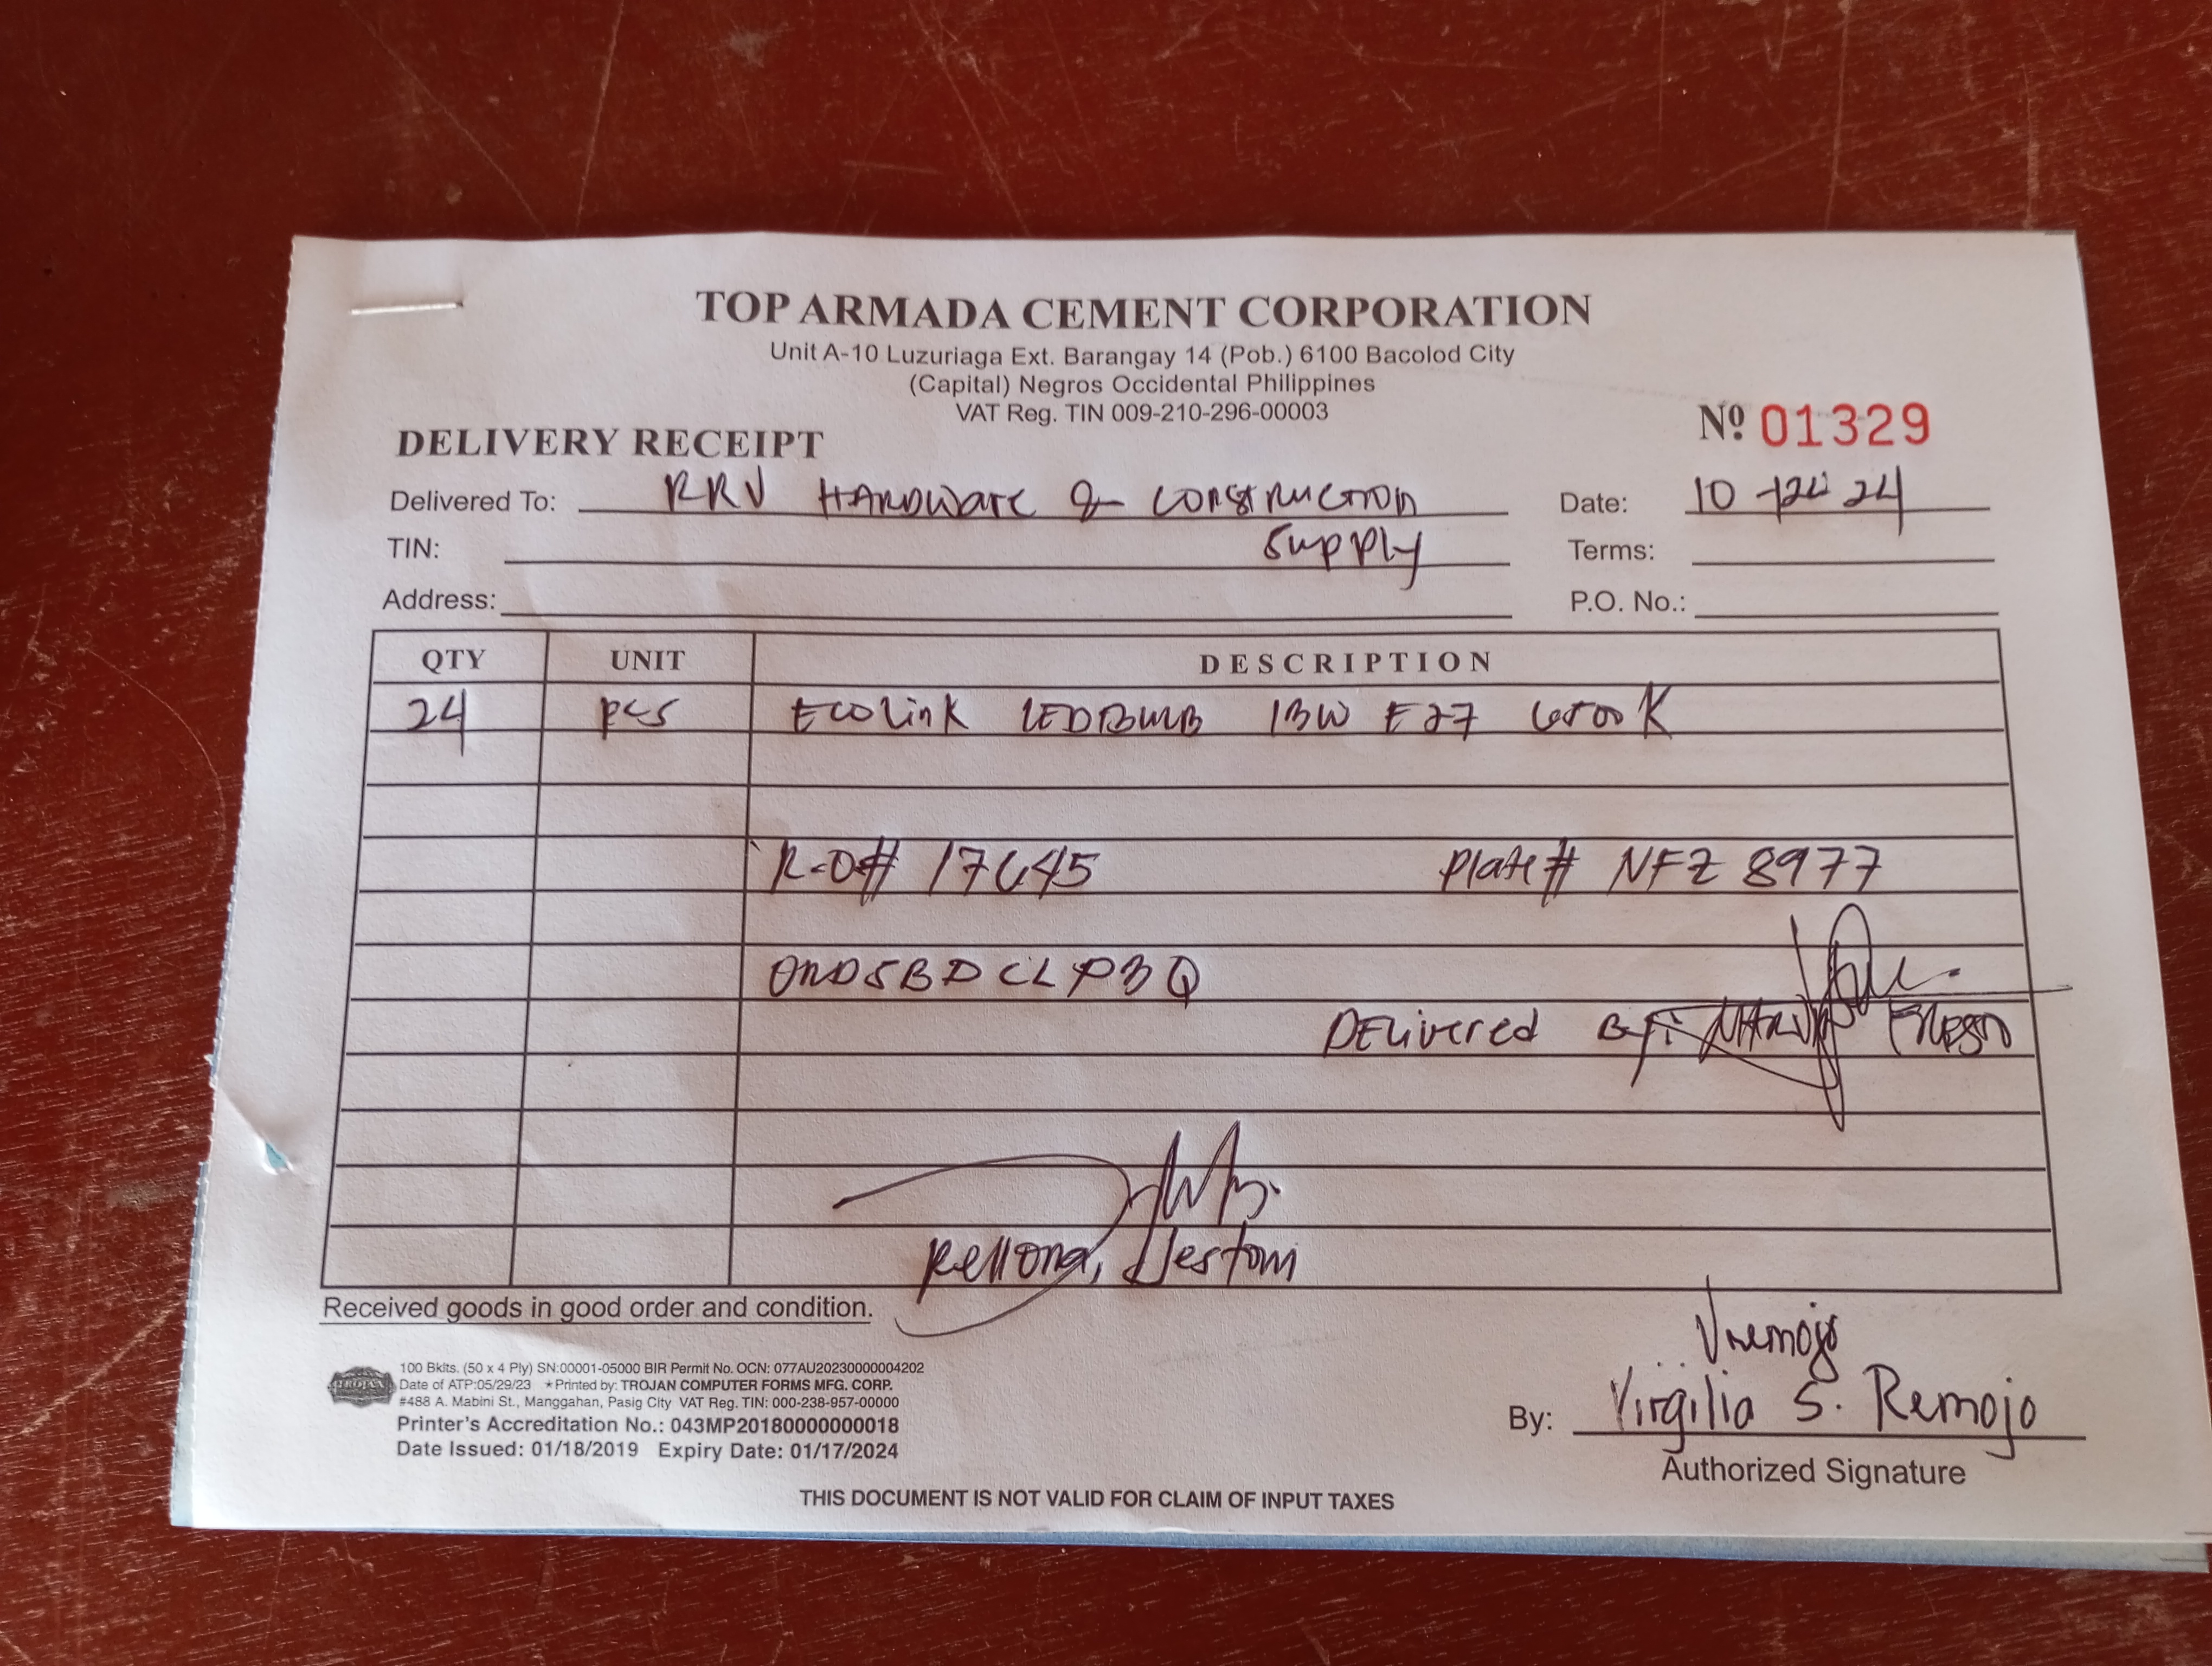 TOP ARMADA CEMENT CORPORATION
Unit A-10 Luzuriaga Ext. Barangay 14 (Pob.) 6100 Bacolod City
(Capital) Negros Occidental Philippines
VAT Reg. TIN 009-210-296-00003
Nº 01329
DELIVERY RECEIPT
Delivered To: RRV HARDWARE & CONSTRUCTION Date: 10
TIN: Supply Terms:
Address: P.O. No.:
QTY UNIT DESCRIPTION
24 pcs ECOLINK LEDBULB 13W E27 6500K
R-O# 17645 Plate# NFZ 8977
Delivered By:
Rellona,
Received goods in good order and condition.
Vremojo
By: Virgilia S. Remojo
Authorized Signature
TROJAN
100 Bklts. (50 x 4 Ply) SN:00001-05000 BIR Permit No. OCN: 077AU20230000004202
Date of ATP:05/29/23 *Printed by: TROJAN COMPUTER FORMS MFG. CORP.
#488 A. Mabini St., Manggahan, Pasig City VAT Reg. TIN: 000-238-957-00000
Printer's Accreditation No.: 043MP20180000000018
Date Issued: 01/18/2019 Expiry Date: 01/17/2024
THIS DOCUMENT IS NOT VALID FOR CLAIM OF INPUT TAXES